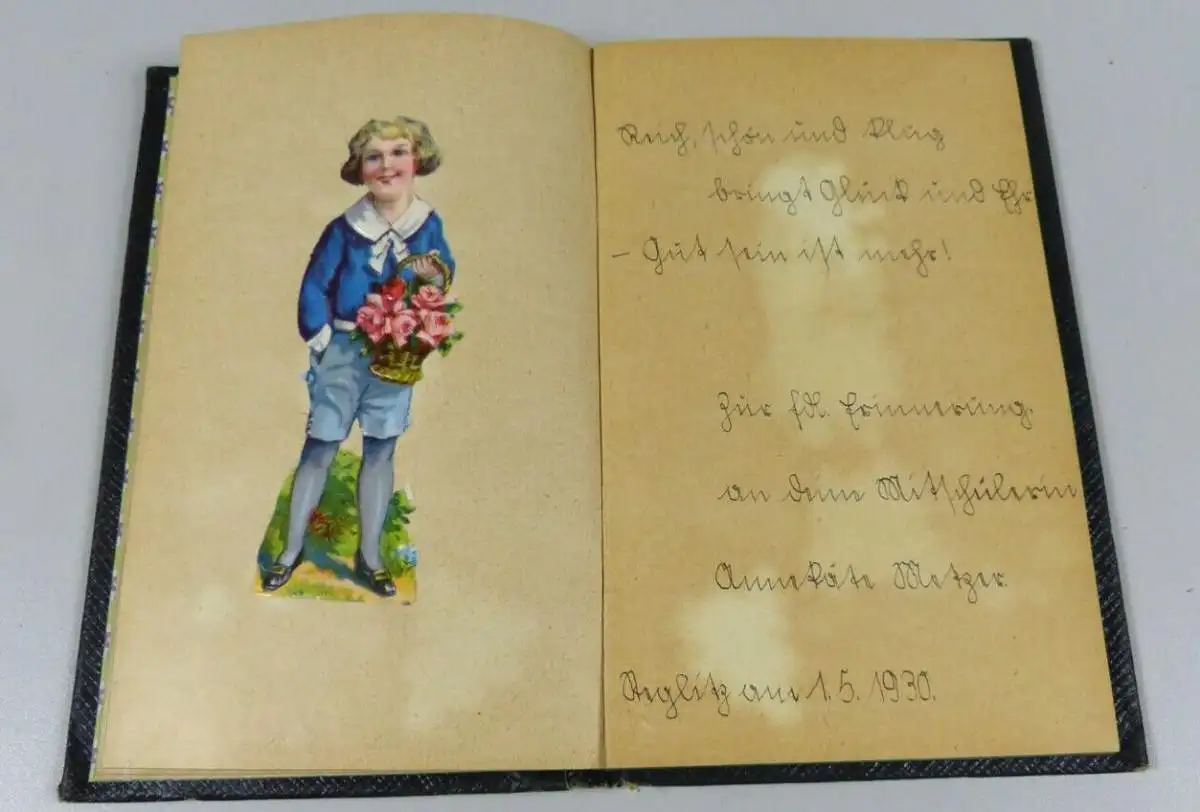 Reich, schön und klug
bringt Glück und Ehr
– Gut sein ist mehr!
Zur fdl. Erinnerung.
an deine Mitschülerin
Annekäte Metzer.
Steglitz am 1.5. 1930.